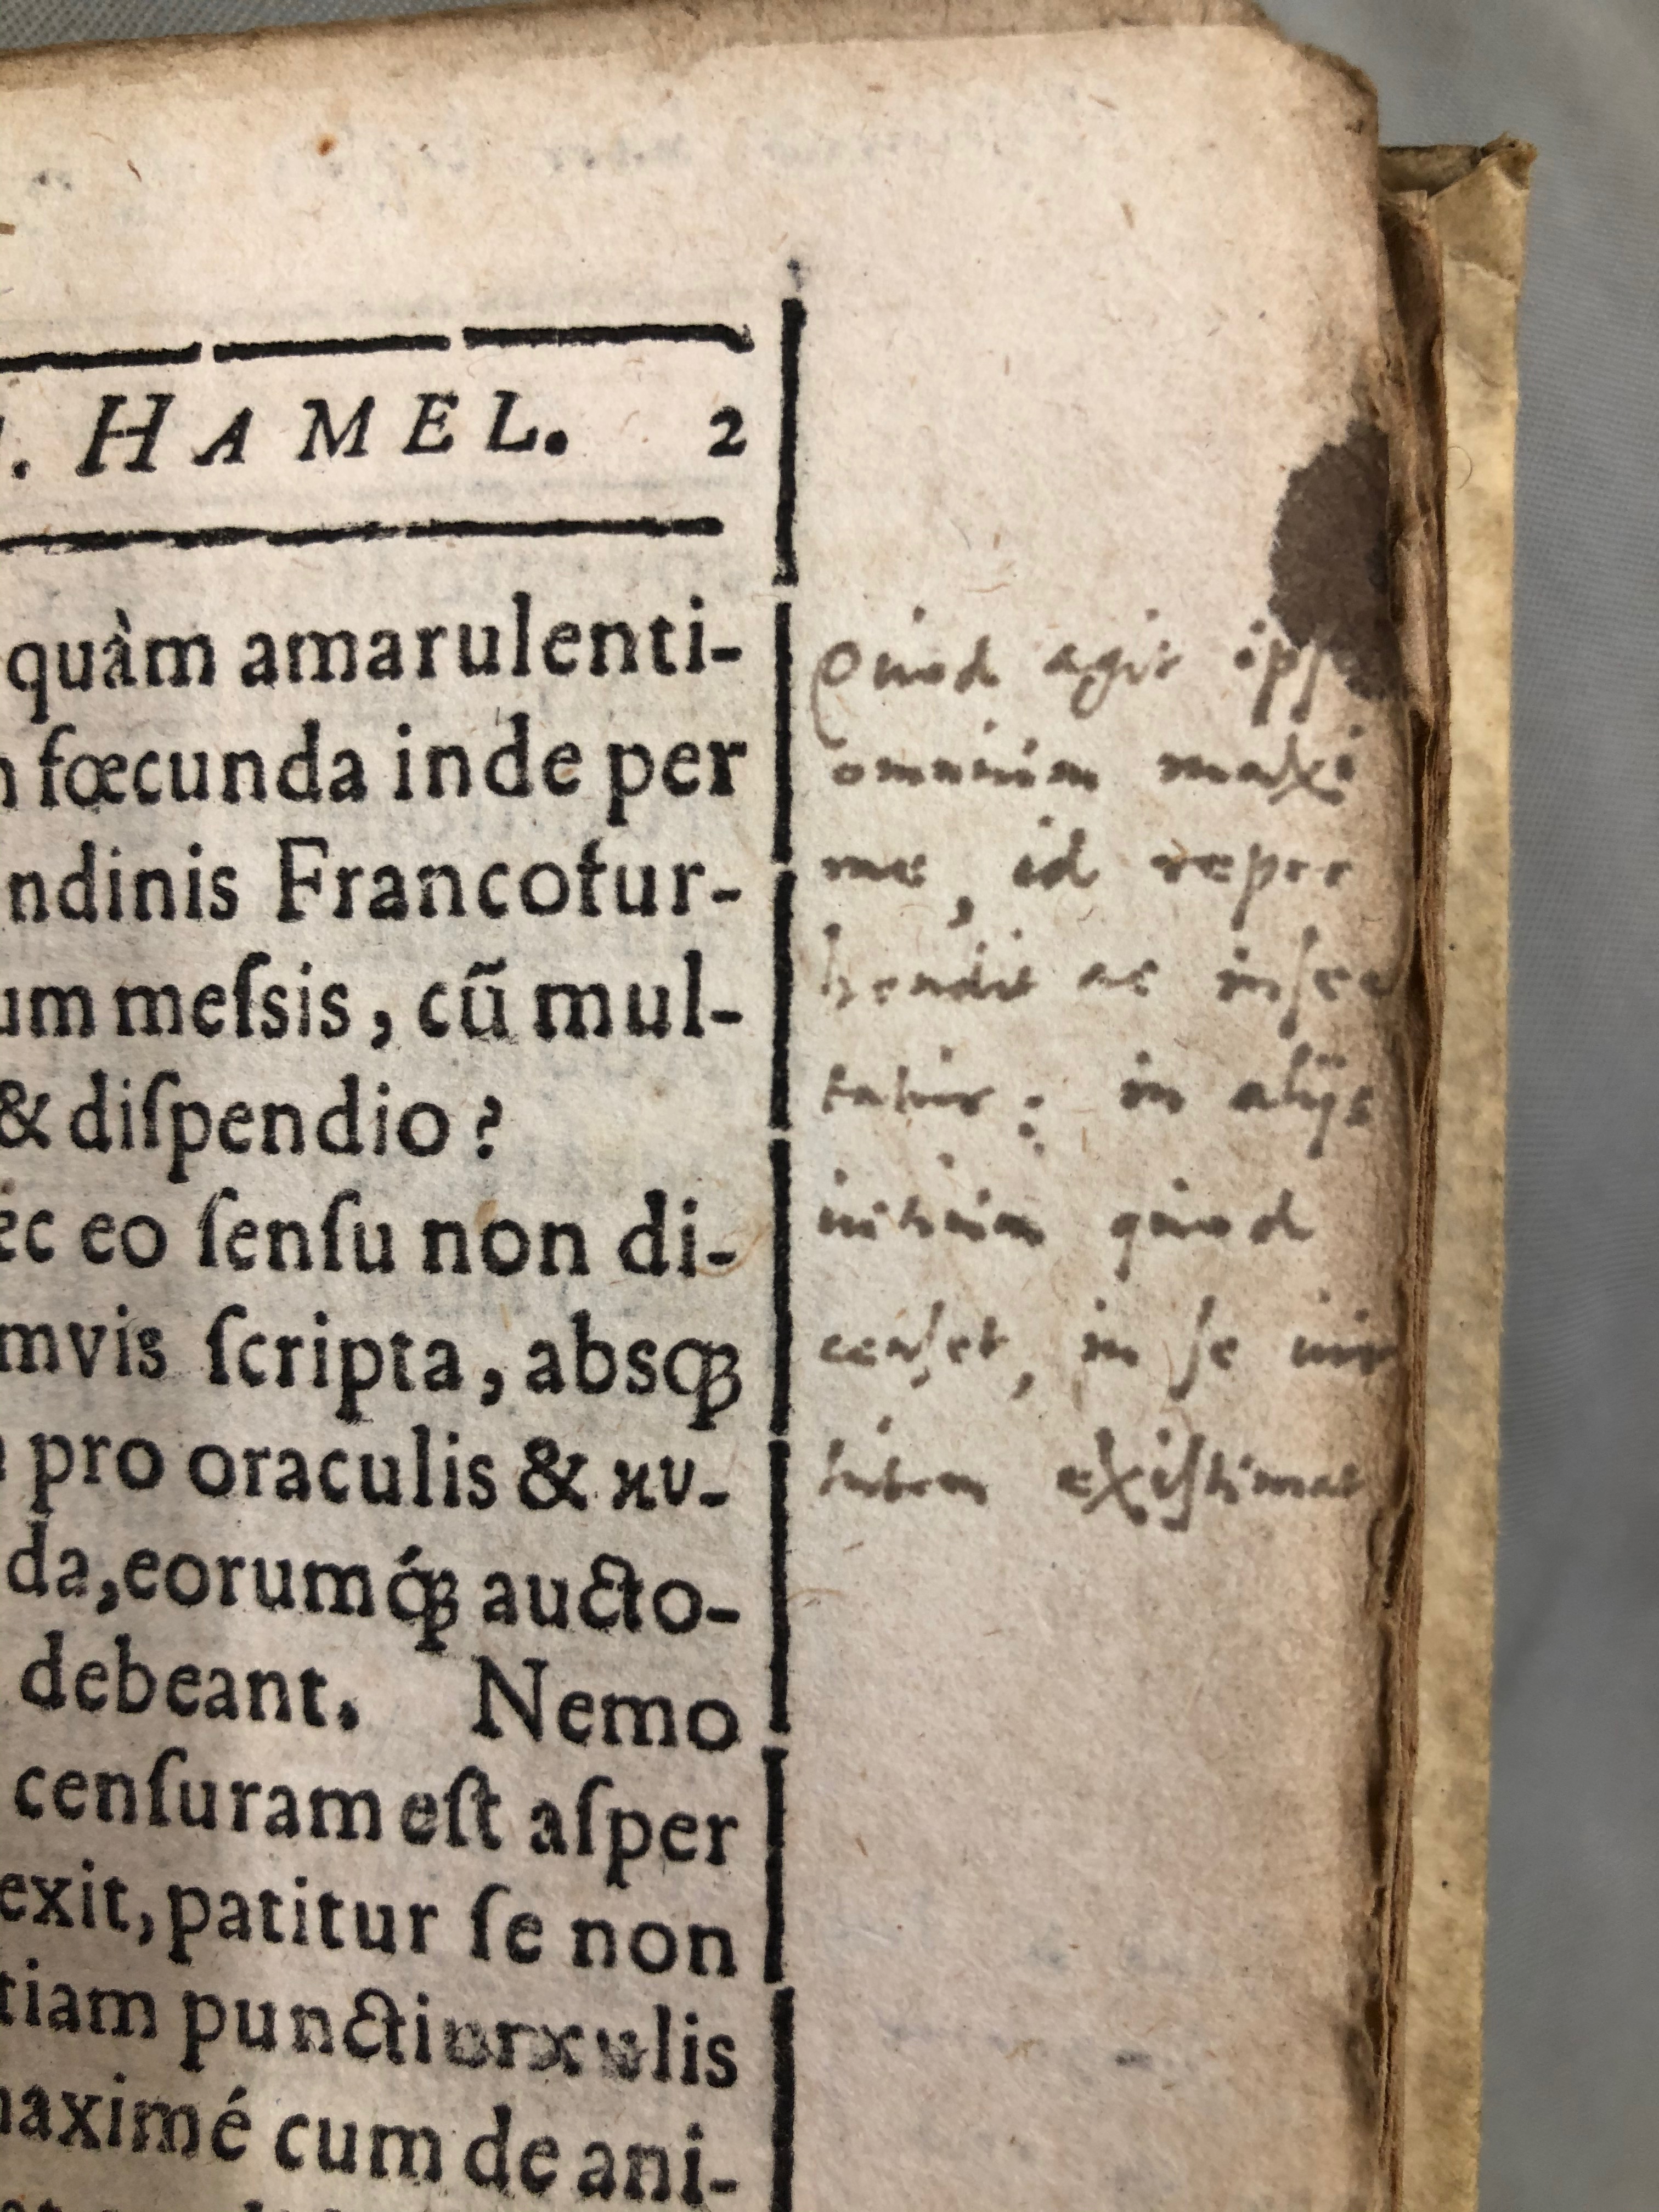 . HAMEL. 2
quàm amarulenti-
fœcunda inde per
ndinis Francofur-
um meſsis, cũ mul-
& diſpendio?
ec eo ſenſu non di-
mvis ſcripta, absqꝫ
pro oraculis & κυ-
da, eorumq́ꝫ aucto-
debeant. Nemo
cenſuram eſt aſper
exit, patitur ſe non
tiam puncti lis
maximé cum de ani-
Quod agit ipſe
omnium maxi
me, id repre
hendit ac inſec
tatur: in alijs
uitium quod
cenſet, in ſe uir
tutem exiſtimat